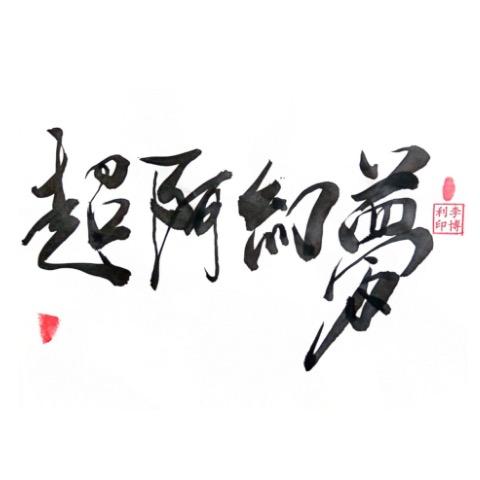 超阿幻夢
李博利印